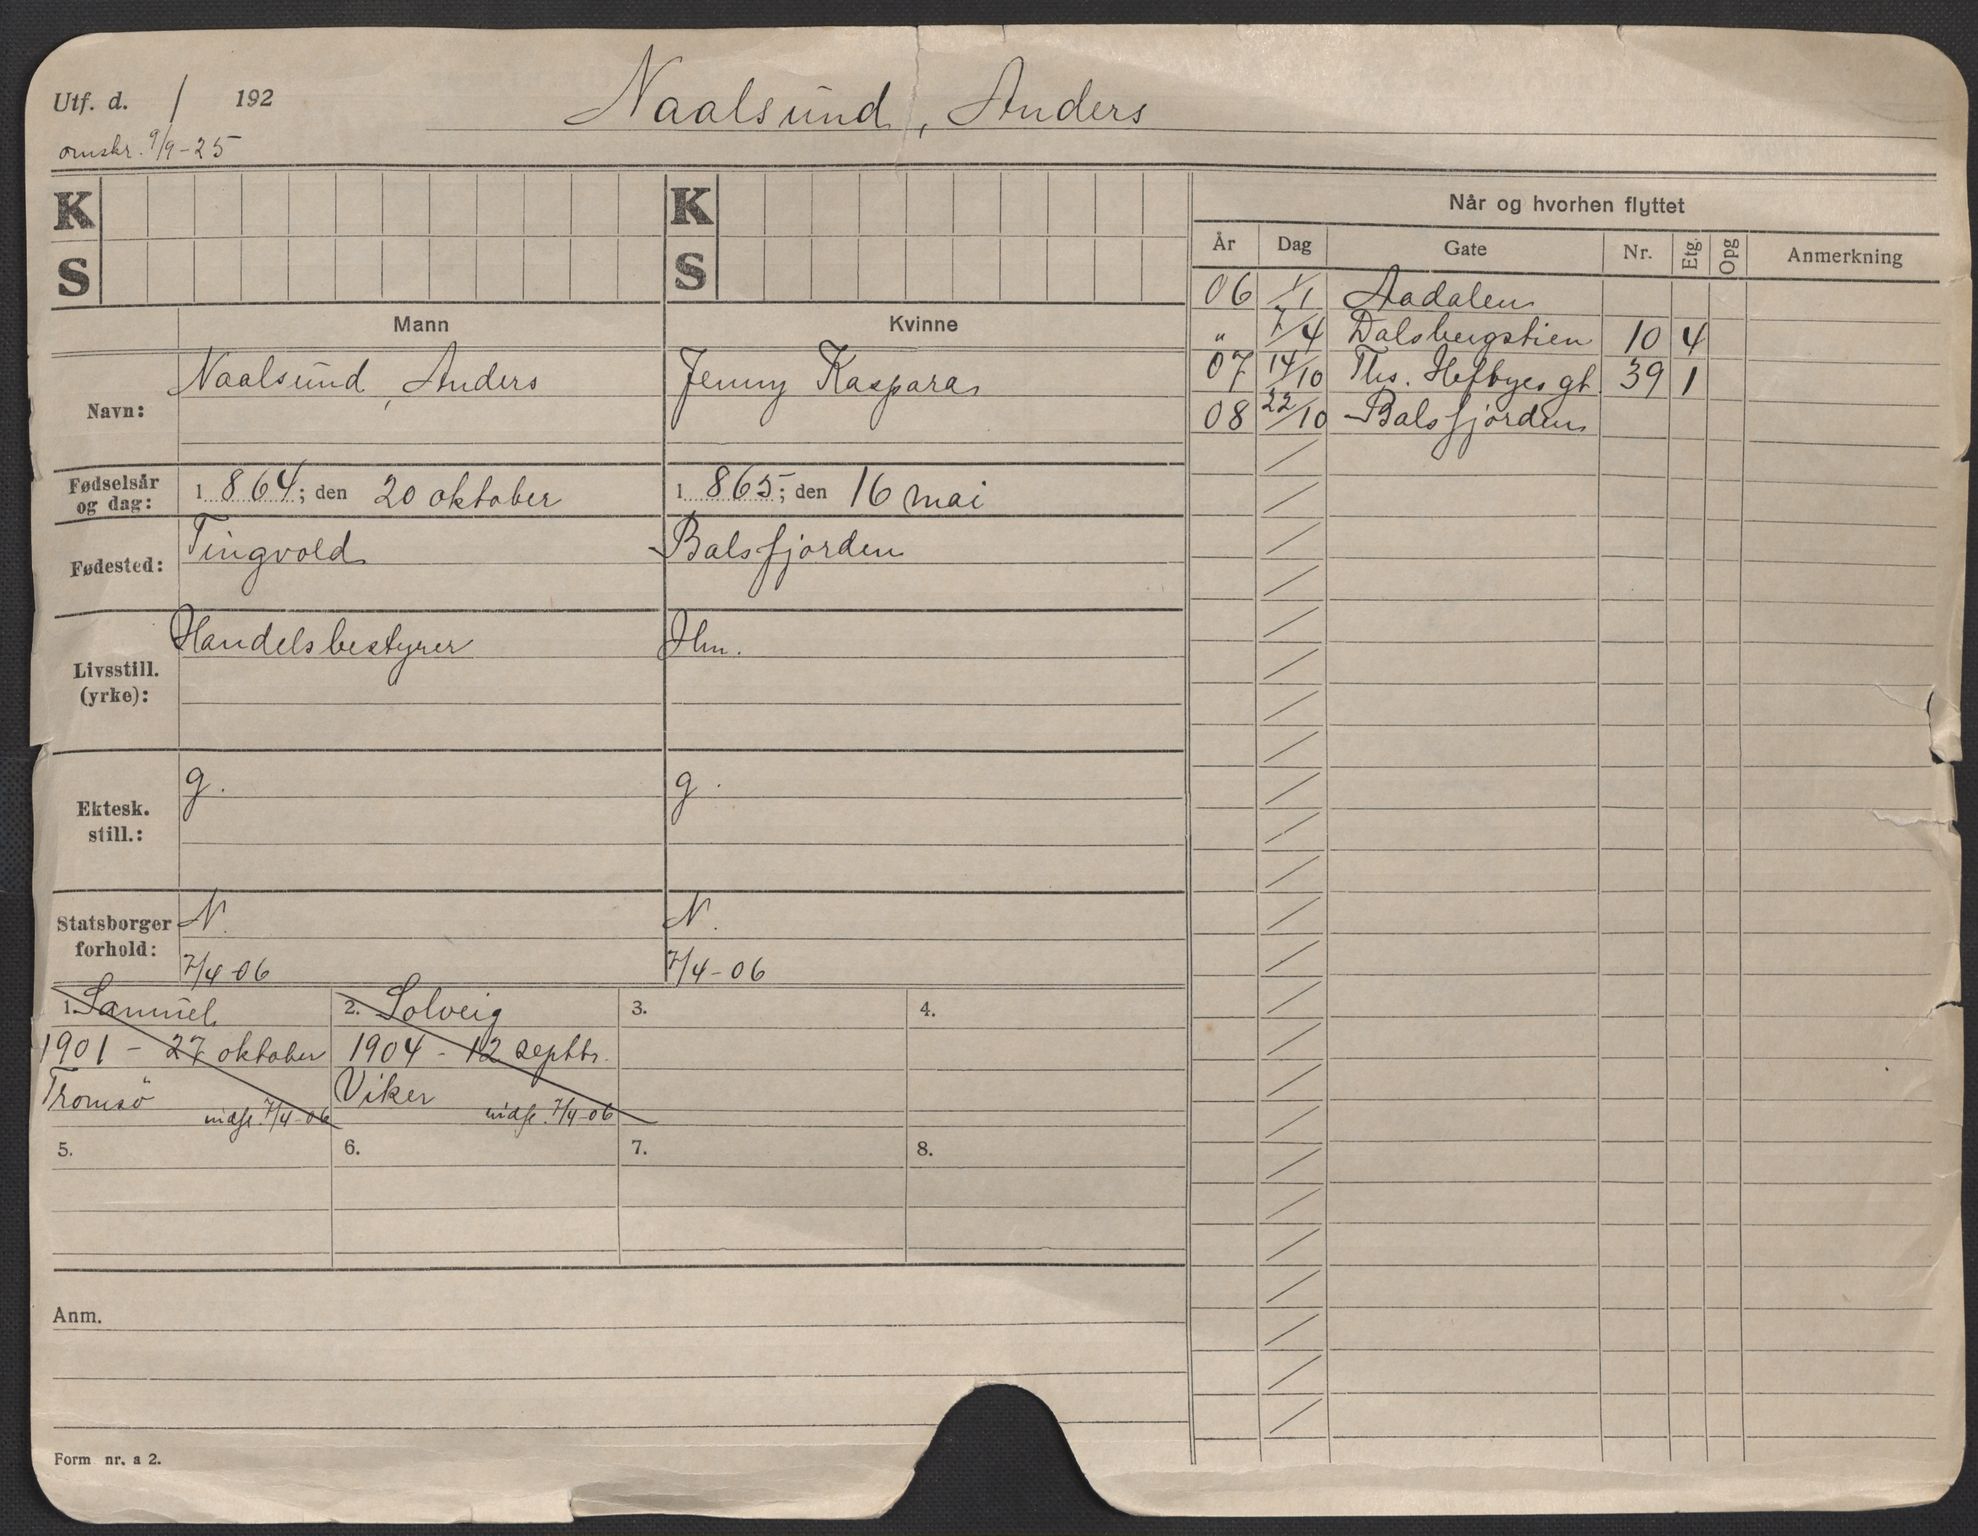 Utf. d. / 192
Naalsund, Anders
omskr. 9/9-25
K K
S S
Når og hvorhen flyttet
År Dag Gate Nr. Etg. Opg Anmerkning
06 1/1 Aadalen
" 7/4 Dalsbergstien 10 4
07 14/10 Ths. Heftyes gt. 39 1
08 22/10 Balsfjorden
Mann Kvinne
Navn: Naalsund, Anders Jenny Kaspara
Fødselsår
og dag: 1 864; den 20 oktober 1 865; den 16 mai
Fødested: Tingvold Balsfjorden
Livsstill.
(yrke): Handelsbestyrer Hm.
Ektesk.
still.: g. g.
Statsborger
forhold: N. N.
7/4-06 7/4-06
1. Samuel 2. Solveig 3. 4.
1901 - 27 oktober 1904 - 12 septbr.
Tromsö Viker
7/4-06 7/4-06
5. 6. 7. 8.
Anm.
Form nr. a 2.